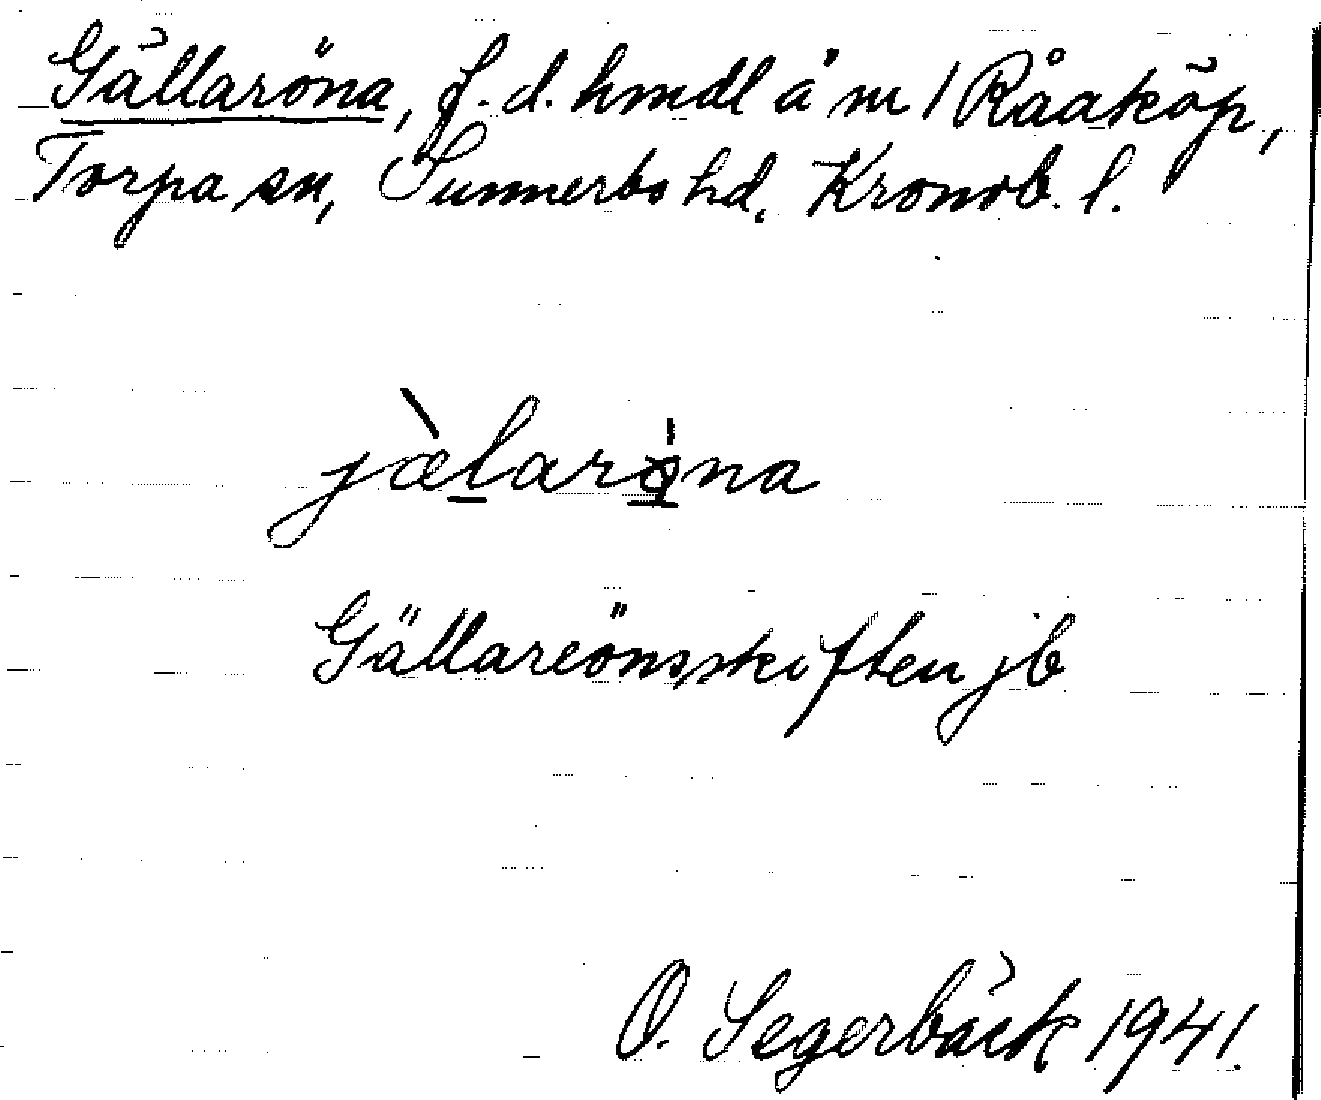 Gällaröna, f.d. hmdl å m 1 Råaköp,
Torpa sn, Sunnerbo hd, Kronob. l.
jæ̀larøna
Gällareönsskiften jb
O. Segerbäck 1941.